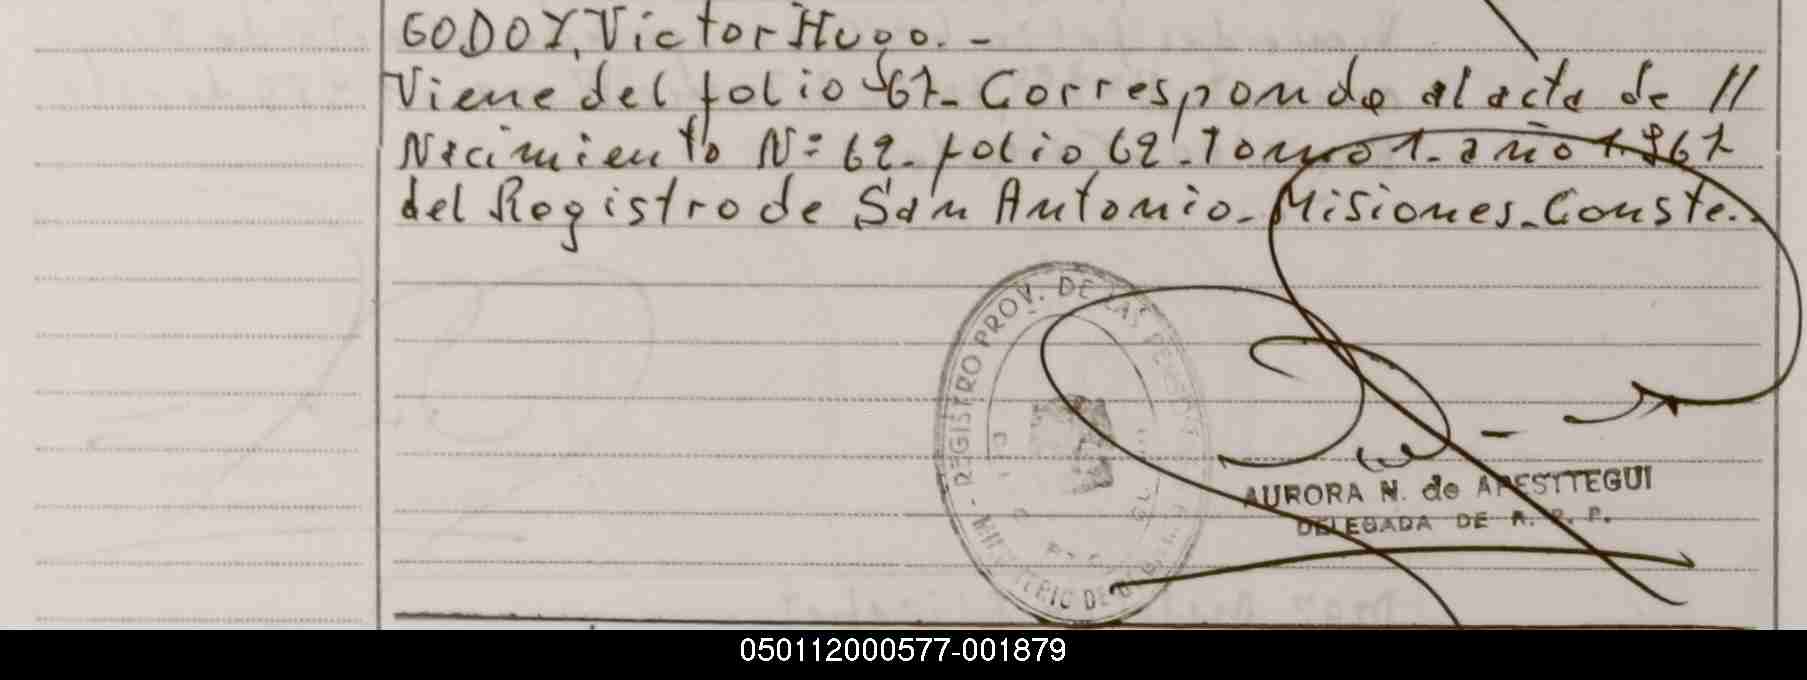 GODOY, Victor Hugo. -
Viene del folio 567- Corresponde al acta de //
Nacimiento Nº 62- folio 62- Tomo 1- año 1967
del Registro de San Antonio- Misiones- Conste.-
- REGISTRO PROV. DE LAS PERSONAS
MINISTERIO DE
AURORA N. de APESTTEGUI
DELEGADA DE R. P. P.
050112000577-001879